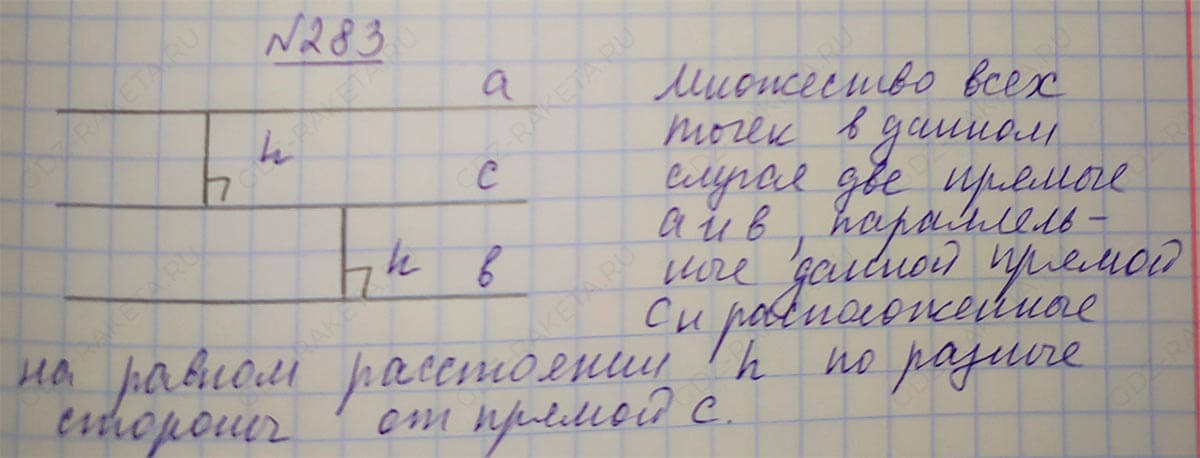 №283
a
h
c
h
в
Множество всех
точек в данном
случае две прямые
a и в, параллель-
ные данной прямой
C и расположенные
на равном расстоянии h по разные
стороны от прямой c.
GDZ-RAKETA.RU